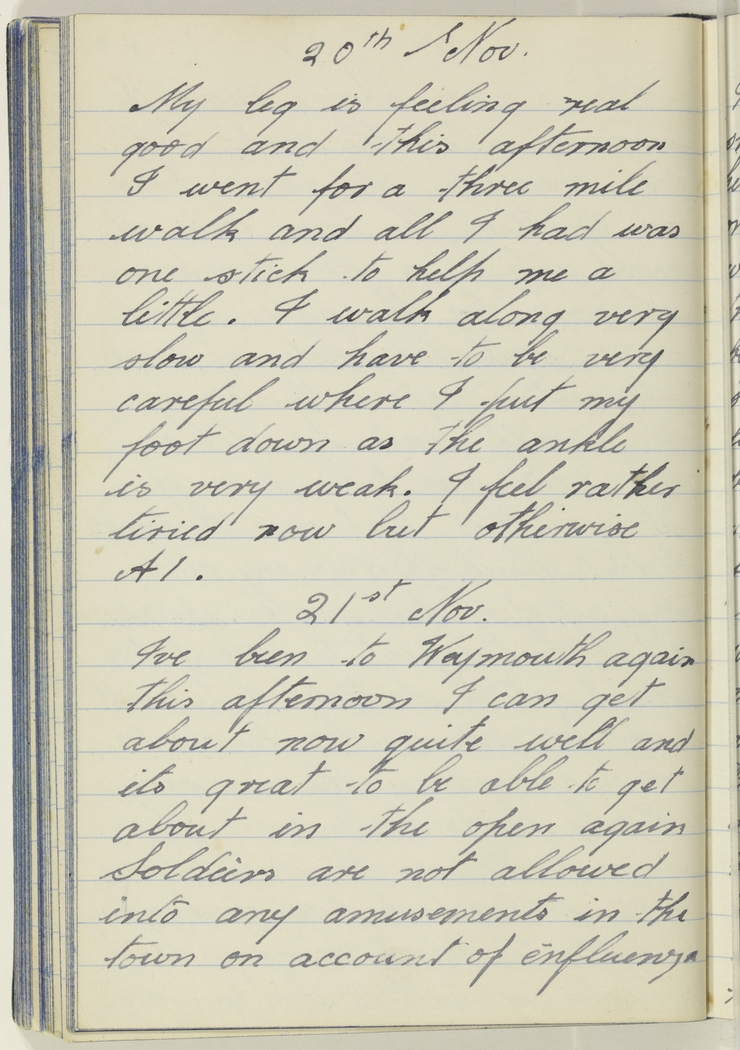 20th Nov.
My leg is feeling real
good and this afternoon
I went for a three mile
walk and all I had was
one stick to help me a
little. I walk along very
slow and have to be very
careful where I put my
foot down as the ankle
is very weak. I feel rather
tiried now but otherwise
A1.
21st Nov.
I've been to Weymouth again
this afternoon I can get
about now quite well and
its great to be able to get
about in the open again
Soldeirs are not allowed
into any amusements in the
town on account of influenza